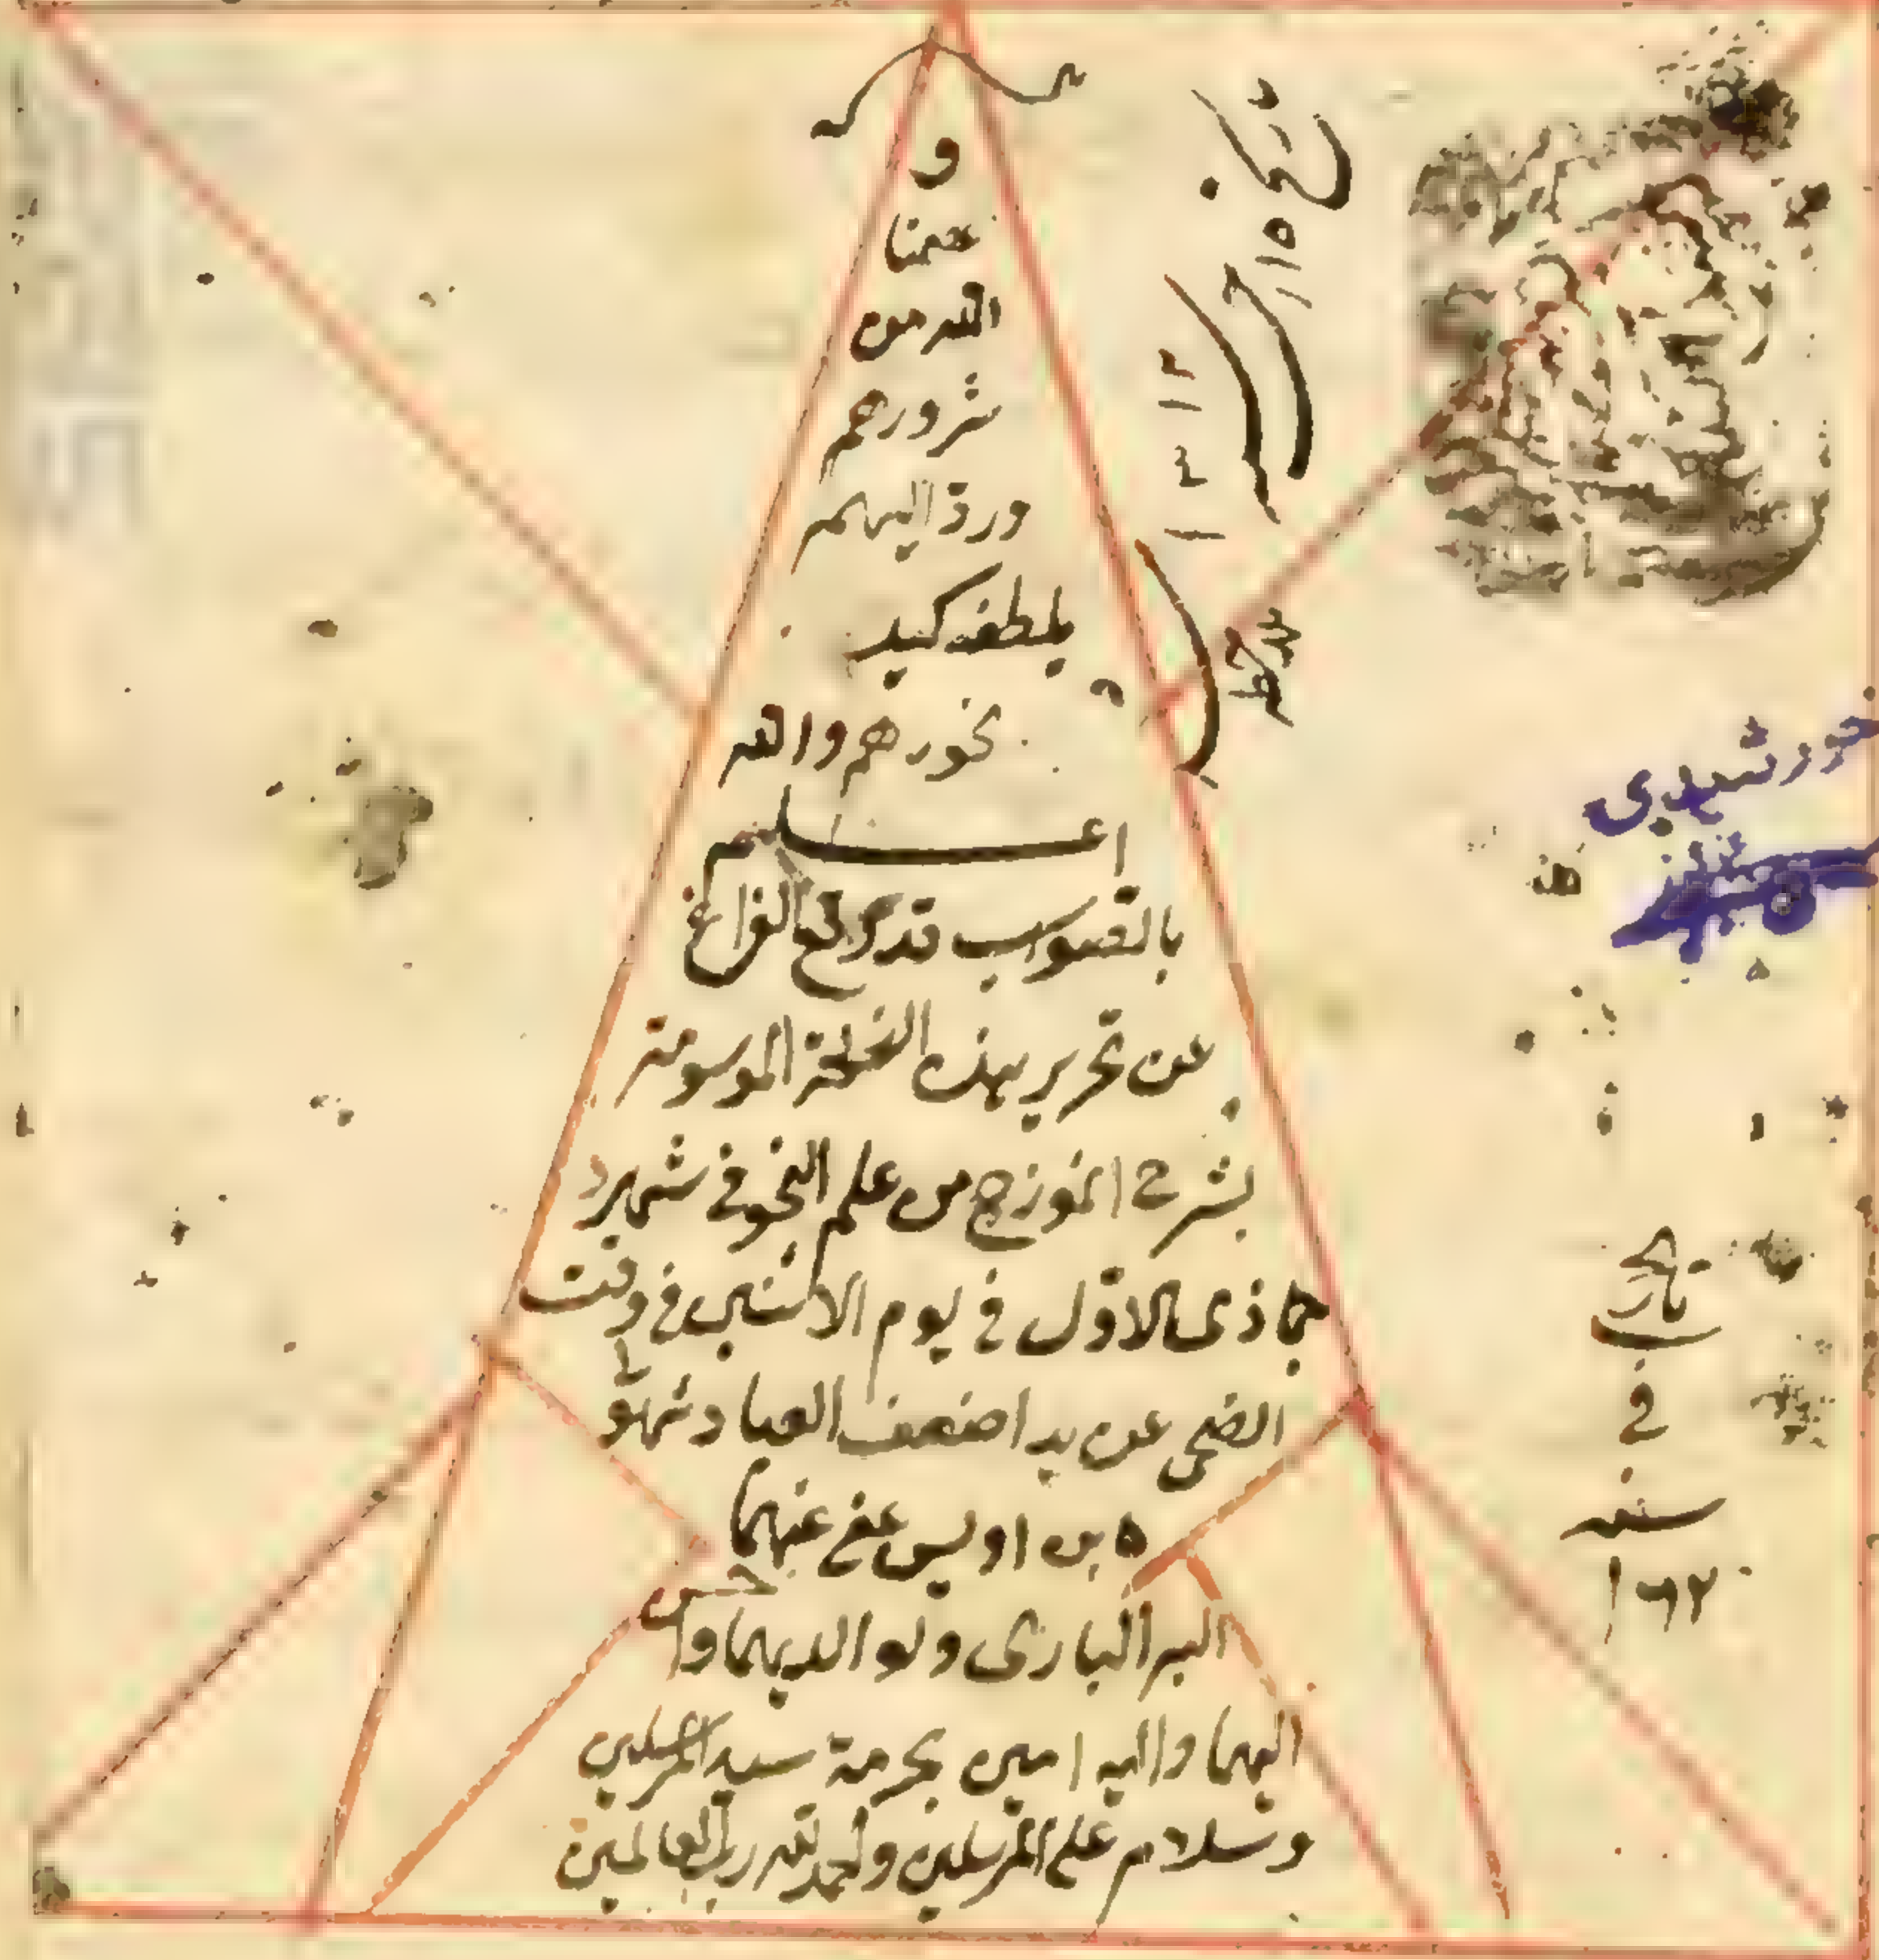 و
عصمنا
الله من
شرورهم
ورد اليهم
بلطفه كيد
نحورهم والله
اعلم
بالصواب قد وقع الفراغ
عن تحرير هذه النسخة الموسومة
بشرح انموزج من علم النحو في شهر
جماذى الاول في يوم الاثنين في وقت
الضحى عن يد اضعف العباد
ابن اويس عفى عنهما
البر البارى ولوالديهما واحسن
اليهما واليه امين بحرمة سيد المرسلين
وسلام على المرسلين والحمد لله رب العالمين
١٥
١٣١٢
خورشيدى
تاريخ
في
سنه
١٦٢